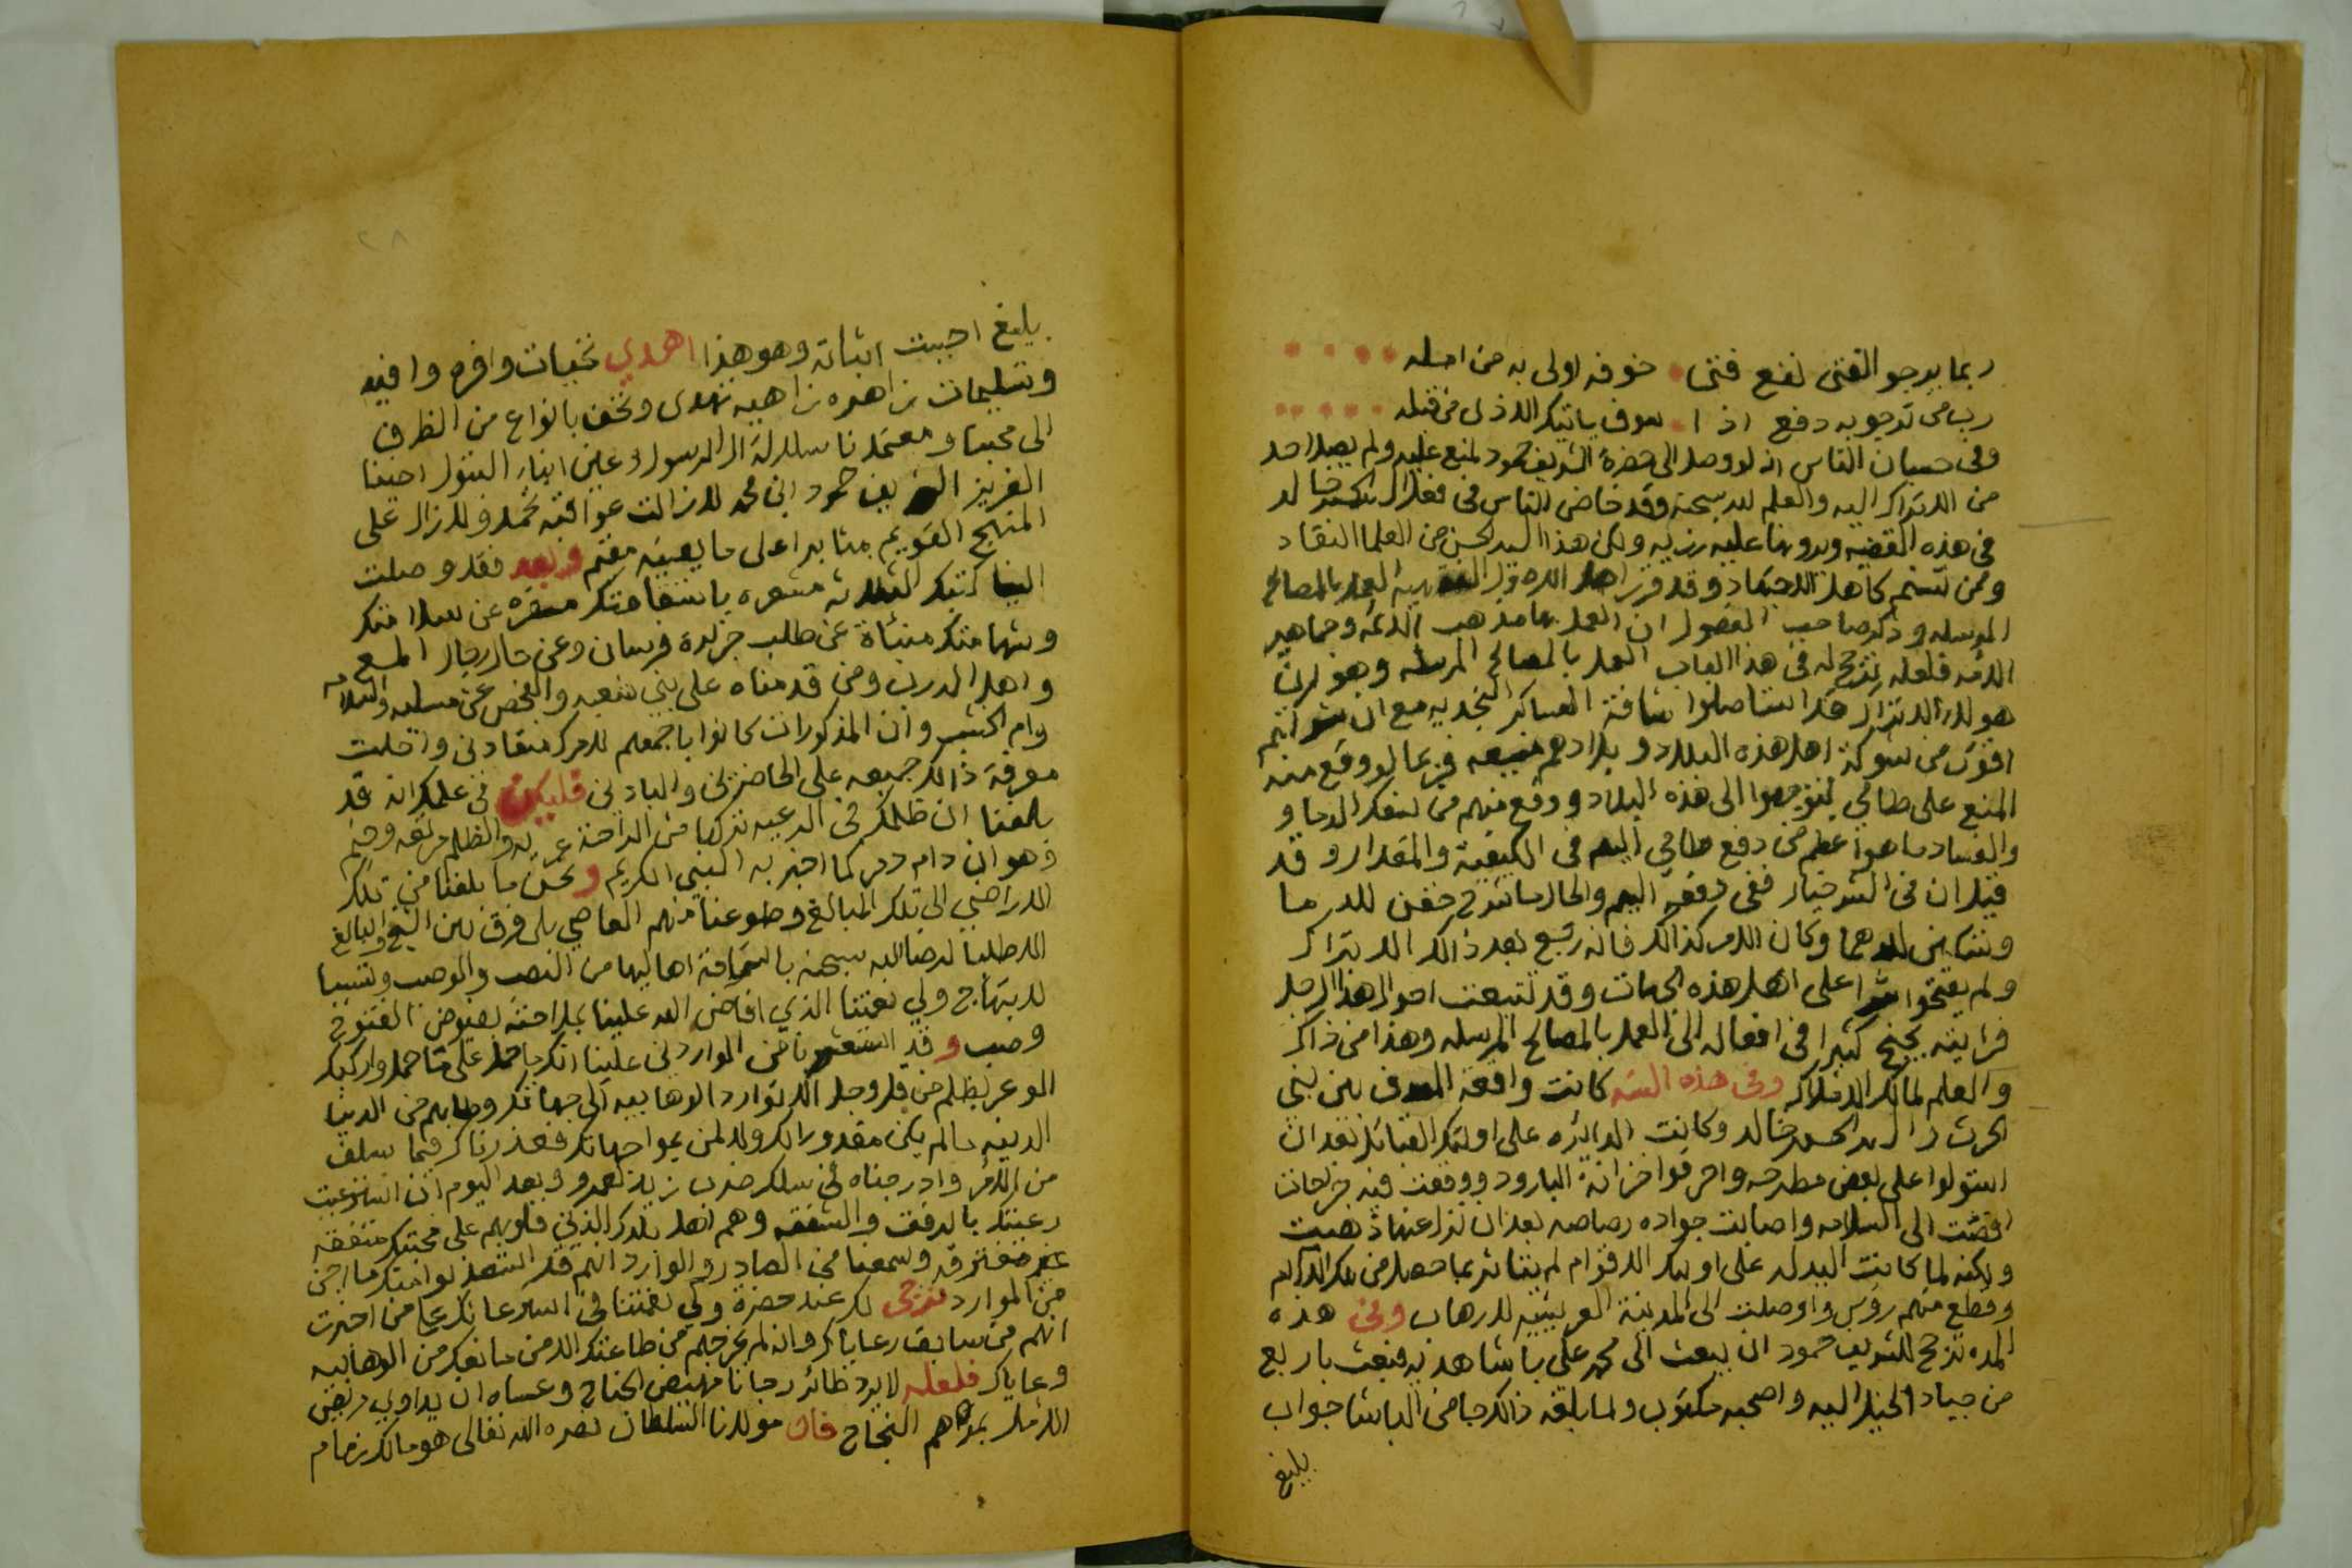 ربما يرجو الفتى نفع فتى خوفه اولى به من امله
رب من ترجو به دفع اذا سوف ياتيك الاذى من قبله
وفى حسبان الناس انه لو وصل الى حضرة الشريف حمود لمنع عليه ولم يصل احد
من الاتراك اليه والعلم لله سبحنه وقد خاض الناس فى فعل الحسن خالد
فى هذه القضيه ورونها عليه رزيه ولكن هذا السيد الحسن من العلما النقاد
وممن تسنم كاهل الاجتهاد وقد قرر اهل العمل بالمصالح
المرسله وذكر صاحب الفصول ان العمل بها مذهب الائمه وجماهير
الامه فلعله ترجح له فى هذا الباب العمل بالمصالح المرسله وهو ان
هولاء الاتراك قد استاصلوا شافة العساكر النجديه مع ان شوكتهم
اقوى من شوكة اهل هذه البلاد و بلادهم فربما لو وقع منه
المنع على طامي لتوجهوا الى هذه البلاد ووقع منهم من سفك الدما و
والفساد ما هو اعظم من دفع طامي اليهم فى الكيفية والمقدار وقد
قيل ان فى الشر خيار ففى دفعه اليهم والحال ما شرح حقن للدما
وتسكين للدهما وكان الامر كذالك فانه رجع بعد ذالك الاتراك
ولم يفتحوا شرا على اهل هذه الجهات وقد تتبعت احوال هذا الرجل
فرايته يجنح كثيرا فى افعاله الى العمل بالمصالح المرسله وهذا من ذاك
والعلم لمالك الاملاك وفى هذه السنه كانت واقعة بين بنى
الحرث والسيد الحسن خالد وكانت الدائره على اولئك القبائل بعد ان
استولوا على بعض مطرحه واحرقوا خزانة البارود ووقعت فيه جراحات
افضت الى السلامه واصابت جواده رصاصه بعد ان نزل عنها ذهبت
ولكنه لما كانت اليد له على اوليك الاقوام لم يتاثر بما حصل من تلك الالام
وقطع منهم رؤس واوصلت الى المدينة العريشيه للارهاب وفى هذه
المده ترجح للشريف حمود ان يبعث الى محمد على باشا هديه فبعث باربع
من جياد الخيل اليه واصحبه مكتوب ولما بلغه ذالك جا من الباشا جواب
بليغ
بليغ احببت اثباته وهو هذا اهدي تحيات وافره وافيه
وتسليمات زاهره زاهيه تهدى وتحف بانواع من الظرف
الى محبنا ومعتمدنا سلالة ال الرسول وعين ابناء البتول احينا
العزيز الشريف حمود ابن محمد لا زالت عواقبه تحمد ولا زال على
المنهج القويم مثابرا على ما يعينه مقيم وبعد فقد وصلت
الينا كتبك الثلاثه مشعره باستقامتكم مسفره عن سلامتكم
وشهامتكم منبئاة عن طلب جزيدة فرسان وعن حال رجال المع
واهل الدرب ومن قدمناه على بني شعبه والفحص عن مسليه والسلامه
وام الخشب وان المذكورات كانوا باجمعهم لامرك منقادين واحلت
معرفة ذالك جميعه على الحاضرين والبادين فليكن فى علمك انه قد
بلغنا ان ظلمك فى الرعيه تركها من الراحة عريه والظلم مرتعه وخيم
وهو ان دام دمر كما اخبر به النبي الكريم ونحن ما بلغنا من تلك
الاراضي الى تلك المبالغ وطوعنا منهم العاصي بلا فرق بين الشيخ والبالغ
الا طلبا لرضا الله سبحنه باستراحة اهاليها من النصب والوصب وتسببا
لابتهاج ولي نعمتنا الذي افاض الله علينا براحته بفيوض الفتوح
وصب وقد استشعرنا من الواردين علينا انكم على وارككم
الوعر بظلم من قل وجل الا توارد الوهابيه الى جهاتكم وطلبهم من الدنيا
الدينه ما لم يكن مقدورا لكم ولا لمن بمواجهاتكم فعذرناكم فيما سلف
من الامر وادرجناه في سلك ضرب زيد لعمرو وبعد اليوم ان استرعيت
رعيتك بالرفق والشفقه وهم اهل بلادك الذين قلوبهم على محبتكم متفقه
غير متفرقه وسمعنا من الصادر والوارد انهم قد استعذبوا منكم ما
من الموارد نرجى لكم عند حضرة ولى نعمتنا فى استرعائكم على من اخترت
انهم من سابق رعاياكم وانه لم يخرجهم من طاعتك الا من ما نعلم من الوهابيه
وعاياك فلعله لا يرد طائر رجانا مهيض الجناح وعساه ان يداوي مريض
الامل بمراهم النجاح فان مولانا السلطان نصره الله تعالى هو مالك زمام